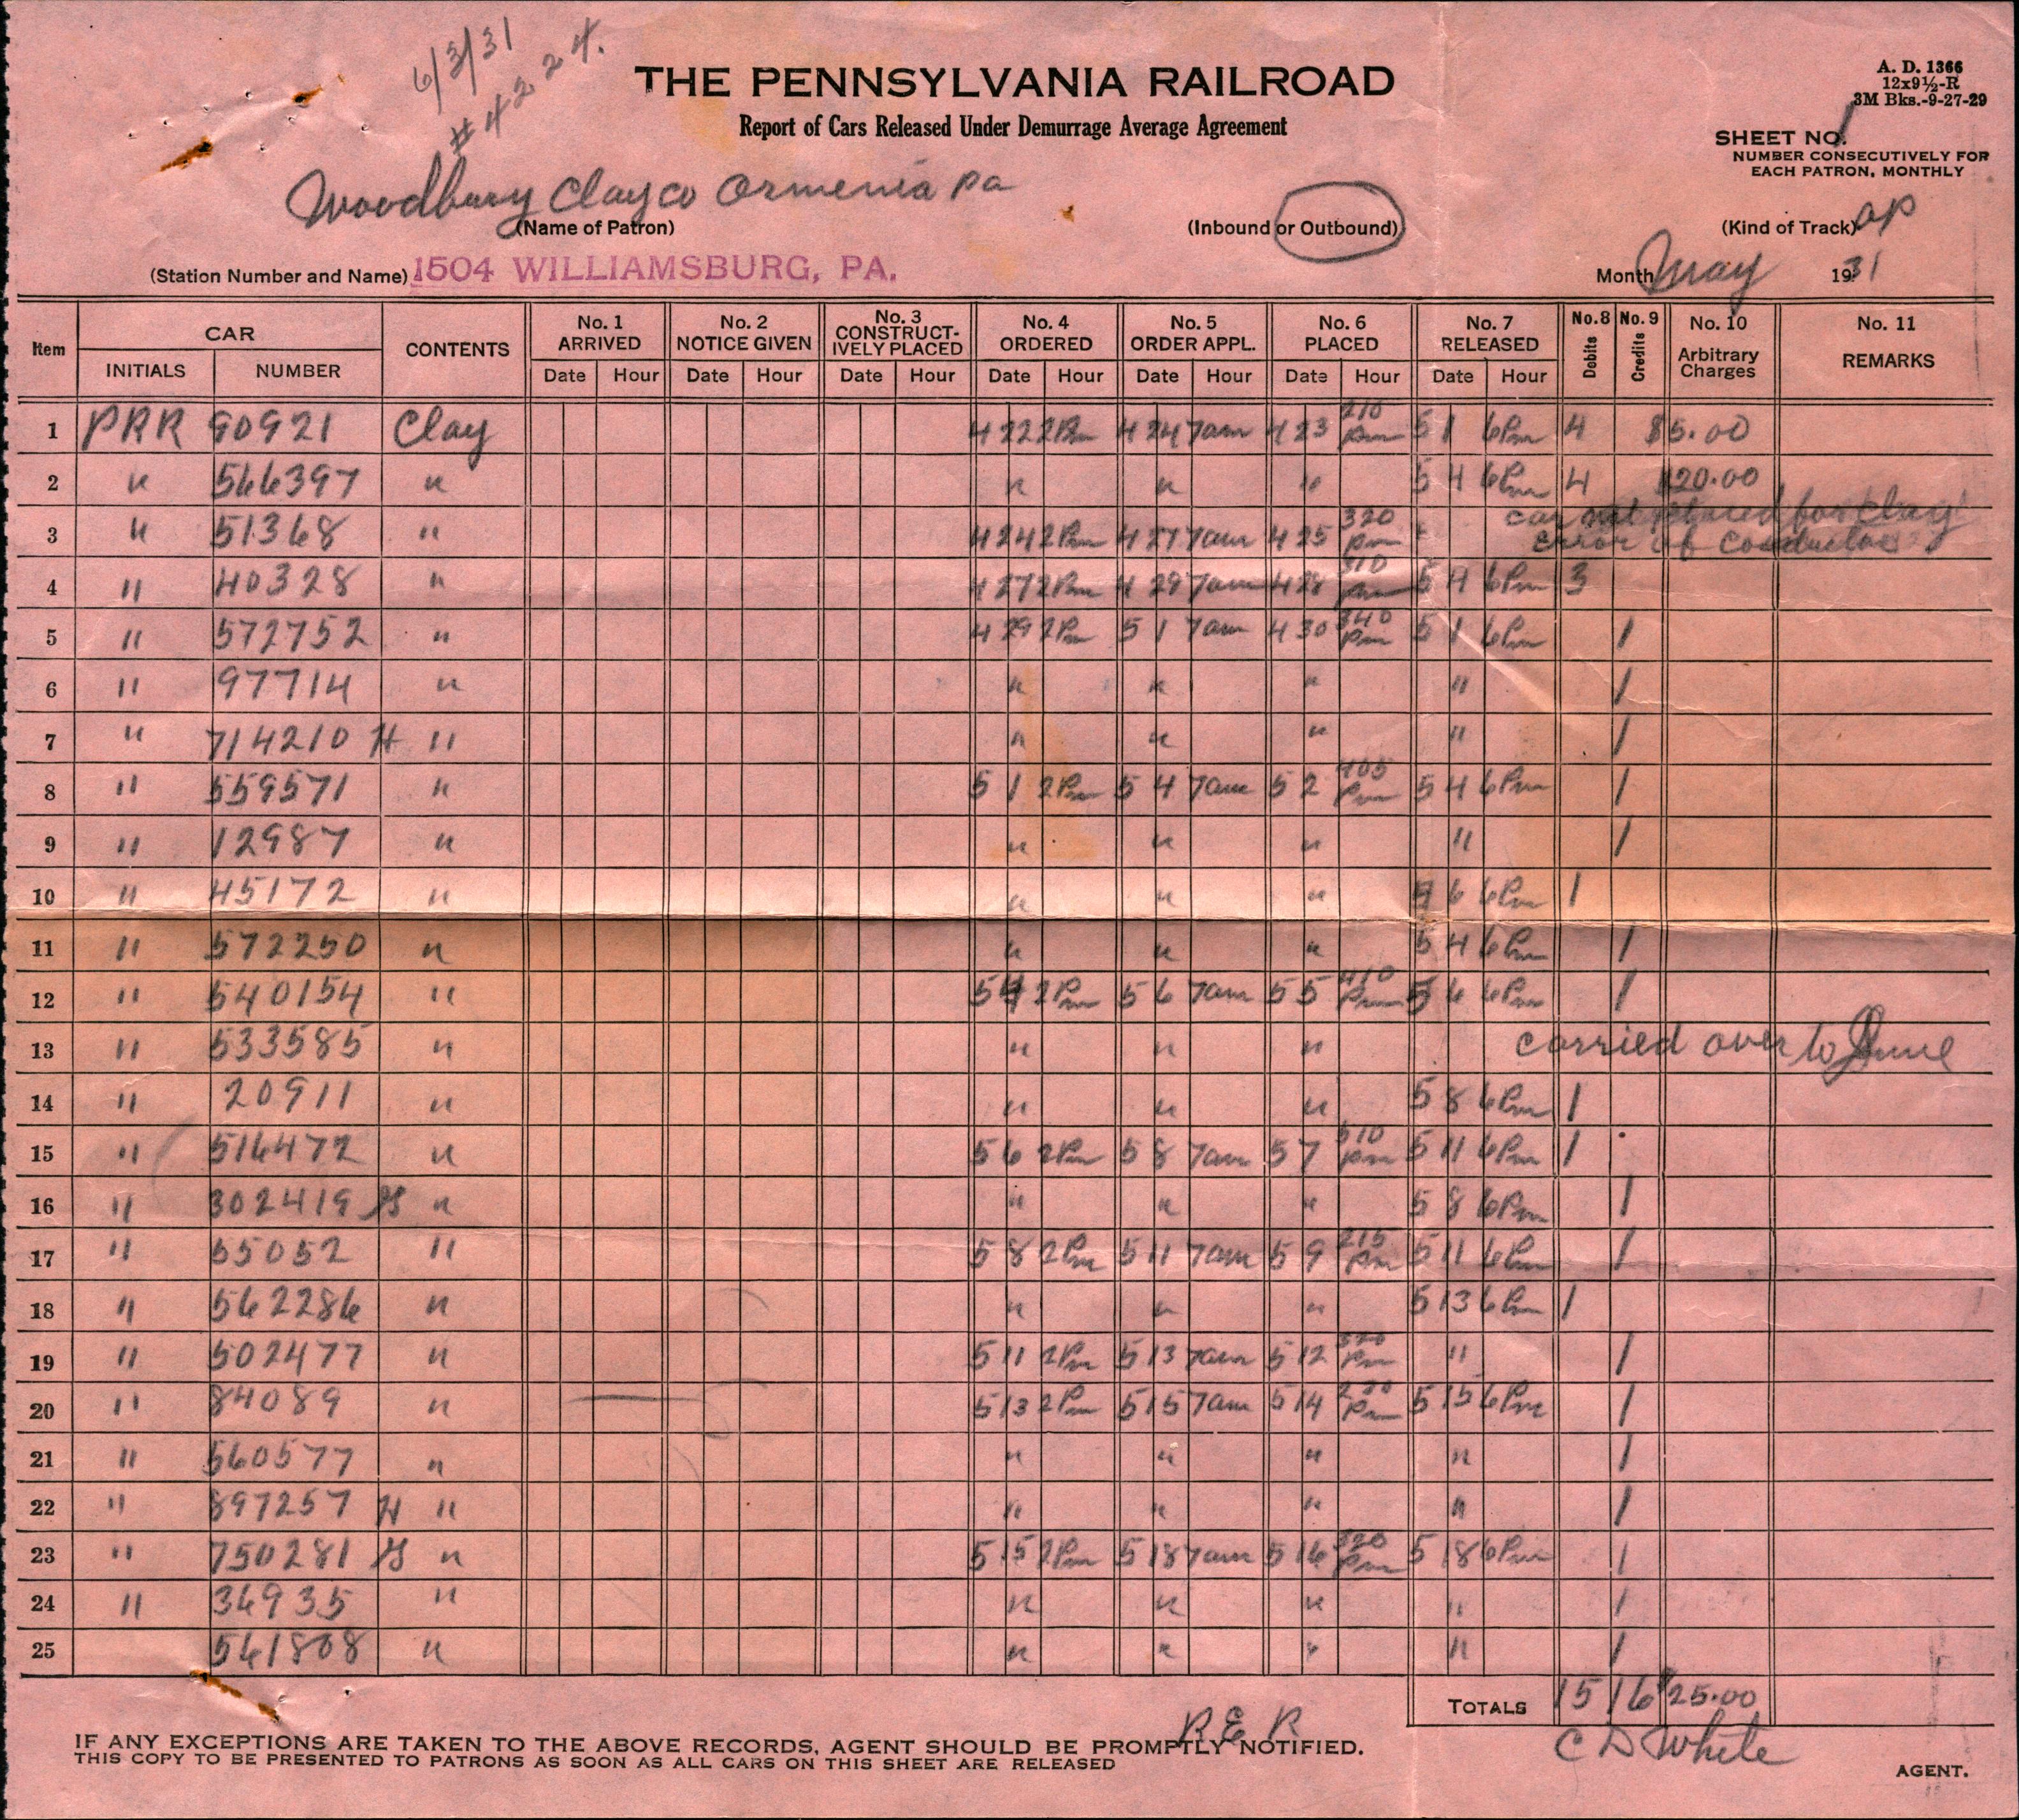 6/3/31
# 4224.
THE PENNSYLVANIA RAILROAD
Report of Cars Released Under Demurrage Average Agreement
A. D. 1366
12x9½-R
3M Bks.-9-27-29
SHEET NO. 1
NUMBER CONSECUTIVELY FOR
EACH PATRON, MONTHLY
Woodbury Clay co Ormenia pa
(Name of Patron)
(Inbound or Outbound)
(Kind of Track) ap
(Station Number and Name) 1504 WILLIAMSBURG, PA.
Month May 1931
Item CAR INITIALS NUMBER CONTENTS No. 1 ARRIVED Date Hour No. 2 NOTICE GIVEN Date Hour No. 3 CONSTRUCT-IVELY PLACED Date Hour No. 4 ORDERED Date Hour No. 5 ORDER APPL. Date Hour No. 6 PLACED Date Hour No. 7 RELEASED Date Hour No.8 Debits No.9 Credits No. 10 Arbitrary Charges No. 11 REMARKS
1 PRR 90921 Clay 4 22 2Pm 4 24 7am 4 23 210 pm 5 1 6Pm 4 $5.00
2 " 566397 " " " " 5 4 6Pm 4 $20.00
3 " 51368 " 4 24 2Pm 4 27 7am 4 25 320 pm car not placed for clay error of conductor
4 " 40328 " 4 27 2Pm 4 29 7am 4 28 310 pm 5 4 6Pm 3
5 " 572752 " 4 29 2Pm 5 1 7am 4 30 340 Pm 5 1 6Pm 1
6 " 97714 " " " " " 1
7 " 714210 H " " " " " 1
8 " 559571 " 5 1 2Pm 5 4 7am 5 2 405 Pm 5 4 6Pm 1
9 " 12987 " " " " " 1
10 " 45172 " " " " 5 6 6Pm 1
11 " 572250 " " " " 5 4 6Pm 1
12 " 540154 " 5 4 2Pm 5 6 7am 5 5 410 Pm 5 6 6Pm 1
13 " 533585 " " " " carried over to June
14 " 20911 " " " " 5 8 6Pm 1
15 " 516472 " 5 6 2Pm 5 8 7am 5 7 510 pm 5 11 6Pm 1
16 " 302419 G " " " " 5 8 6Pm 1
17 " 55052 " 5 8 2Pm 5 11 7am 5 9 215 Pm 5 11 6Pm 1
18 " 562286 " " " " 5 13 6Pm 1
19 " 502477 " 5 11 2Pm 5 13 7am 5 12 320 Pm " 1
20 " 84089 " 5 13 2Pm 5 15 7am 5 14 Pm 5 15 6Pm 1
21 " 560577 " " " " " 1
22 " 897257 H " " " " " 1
23 " 750281 G " 5 15 2Pm 5 18 7am 5 16 320 Pm 5 18 6Pm 1
24 " 36935 " " " " " 1
25 561808 " " " " " 1
TOTALS 15 16 $25.00
R E R
IF ANY EXCEPTIONS ARE TAKEN TO THE ABOVE RECORDS, AGENT SHOULD BE PROMPTLY NOTIFIED.
THIS COPY TO BE PRESENTED TO PATRONS AS SOON AS ALL CARS ON THIS SHEET ARE RELEASED
C D White
AGENT.